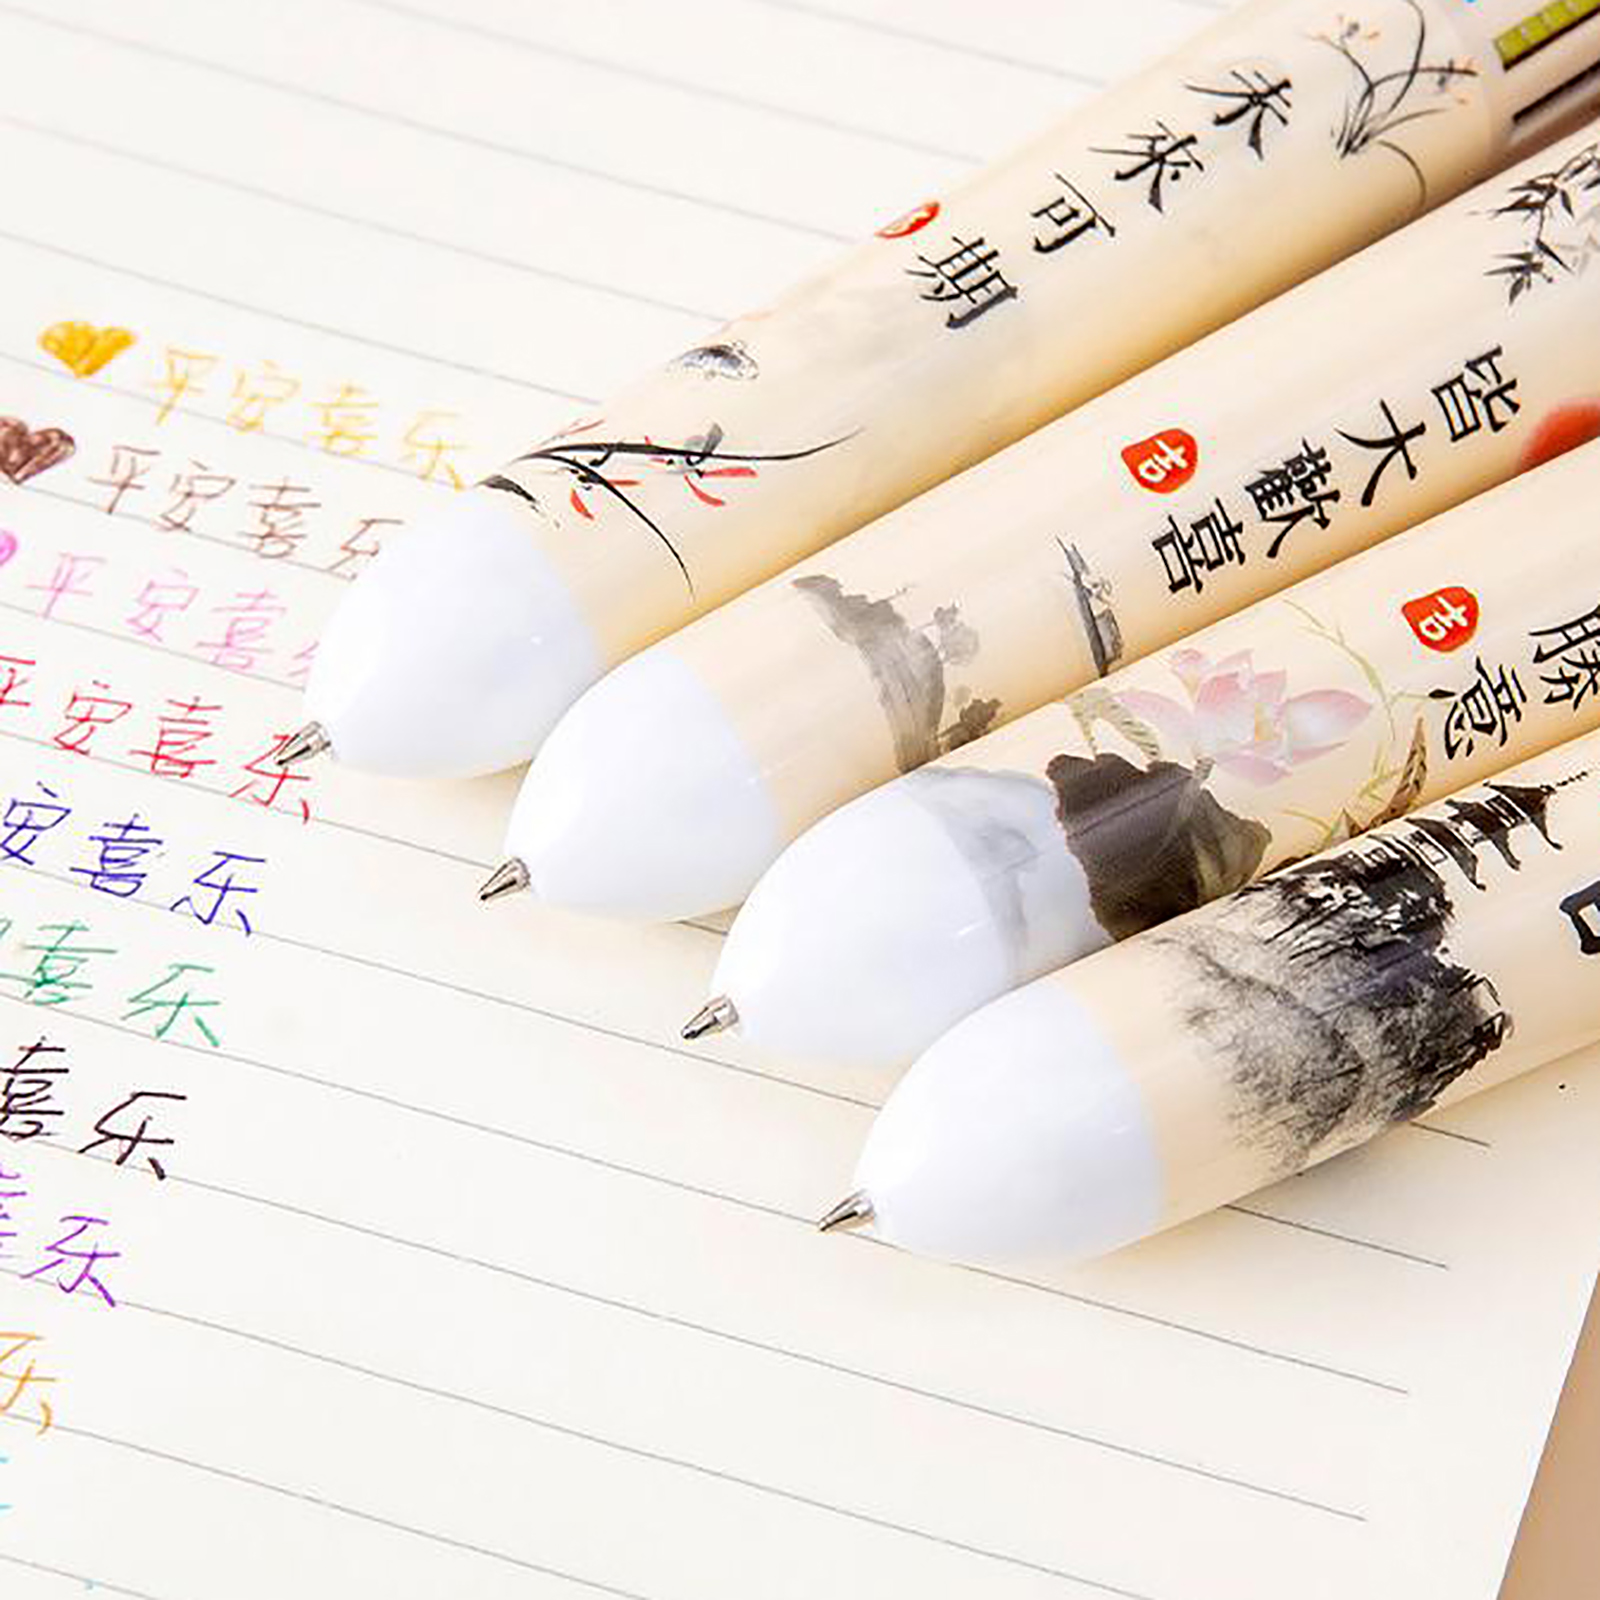 未來可期
皆大歡喜
吉
勝意
吉
平安喜乐
平安喜乐
平安喜
平安喜乐
安喜乐
喜乐
喜乐
喜乐
乐